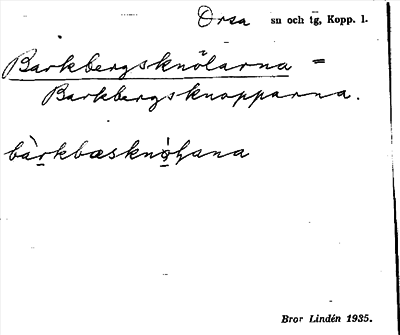 Orsa sn och tg, Kopp. l.
Barkbergsknölarna =
Barkbergsknopparna.
Bror Lindén 1935.